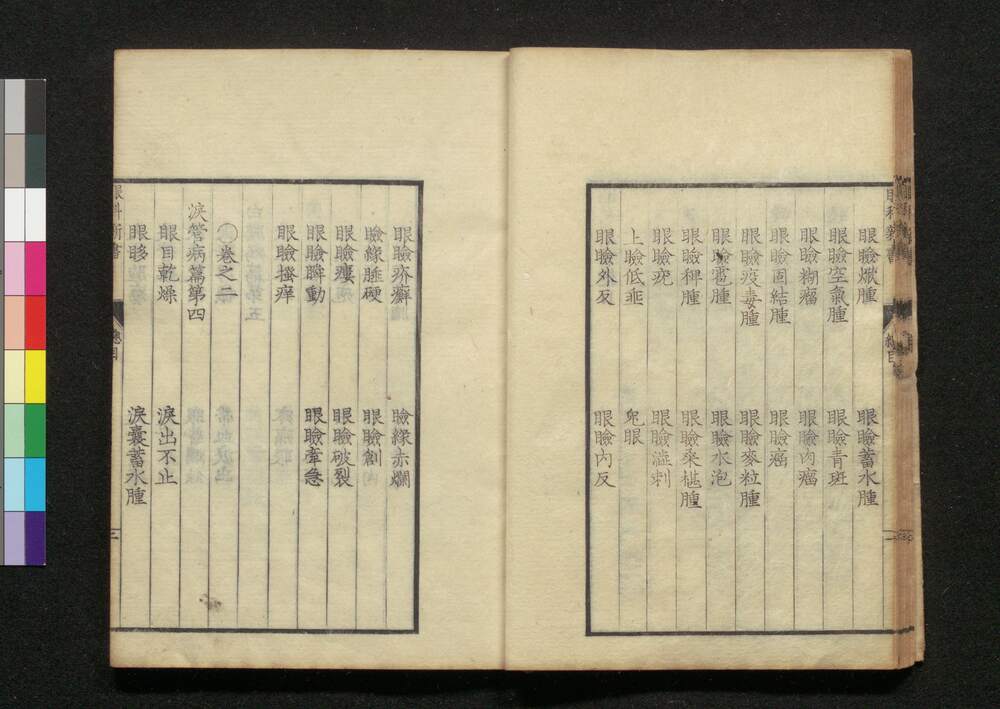 眼瞼焮腫 眼瞼蓄水腫
眼瞼空氣腫 眼瞼青斑
眼瞼粉瘤 眼瞼肉瘤
眼瞼固結腫 眼瞼癌
眼瞼疫毒腫 眼瞼麥粒腫
眼瞼雹腫 眼瞼水泡
眼瞼稗腫 眼瞼桑椹腫
眼瞼疣 眼瞼澁刺
上瞼低垂 兔眼
眼瞼外反 眼瞼內反
眼瞼疥癬 瞼緣赤爛
瞼緣胝硬 眼瞼創
眼瞼瘻 眼瞼破裂
眼瞼瞤動 眼瞼牽急
眼瞼搔痒
卷之二
淚管病篇第四
眼目乾燥 淚出不止
眼眵 淚囊蓄水腫
眼科新書 總目